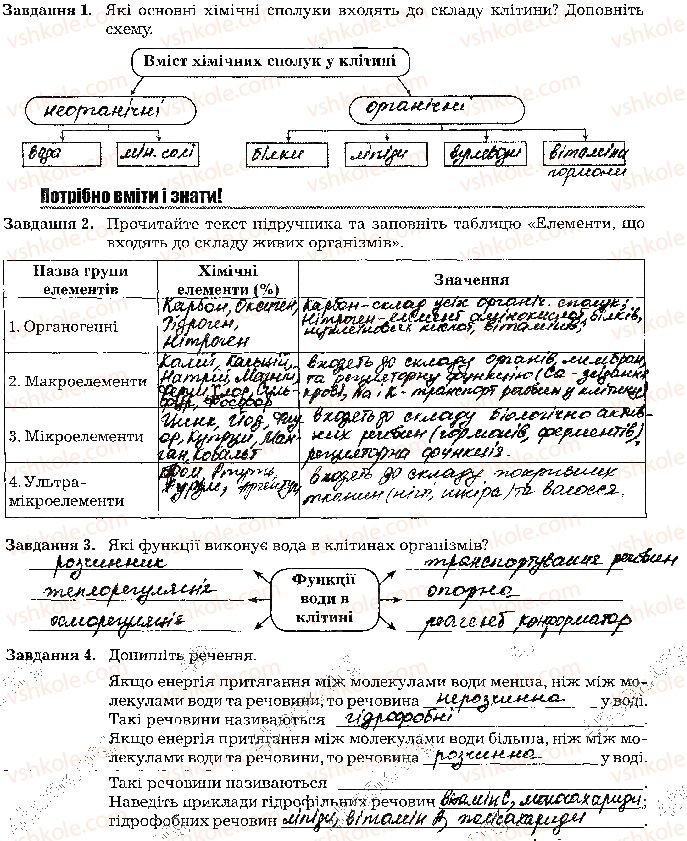 Завдання 1. Які основні хімічні сполуки входять до складу клітини? Доповніть
схему.
Вміст хімічних сполук у клітині
неорганічні органічні
вода мін. солі білки ліпіди вуглеводи вітаміни
гормони
Потрібно вміти і знати!
Завдання 2. Прочитайте текст підручника та заповніть таблицю «Елементи, що
входять до складу живих організмів».
Назва групи елементів
Хімічні елементи (%)
Значення
1. Органогенні
Карбон, Оксиген,
Гідроген,
Нітроген
Карбон-склад усіх органіч. сполук;
Нітроген-елемент амінокислот, білків,
нуклеїнових кислот, вітамінів;
2. Макроелементи
Калій, Кальцій,
Натрій, Магній,
Ферум, Хлор, Суль-
фур, Фосфор
входять до складу органів, мембран,
та регуляторну функцію (Ca-зсідання
крові, Na і K-транспорт речовин у клітину)
3. Мікроелементи
Цинк, Йод, Флу-
ор, Купрум, Ман-
ган, Кобальт
входять до складу біологічно актив-
них речовин (гормонів, ферментів)
регуляторна функція.
4. Ультра-
мікроелементи
Бром,
Аурум, Аргентум
входять до складу покривних
тканин (нігті, шкіра) та волосся.
Завдання 3. Які функції виконує вода в клітинах організмів?
розчинник транспортування речовин
терморегуляція опорна
осморегуляція реагент конформатор
Функції
води в
клітині
Завдання 4. Допишіть речення.
Якщо енергія притягання між молекулами води менша, ніж між мо-
лекулами води та речовини, то речовина нерозчинна у воді.
Такі речовини називаються гідрофобні
Якщо енергія притягання між молекулами води більша, ніж між мо-
лекулами води та речовини, то речовина розчинна у воді.
Такі речовини називаються
Наведіть приклади гідрофільних речовин вітамін С, моносахариди;
гідрофобних речовин ліпіди, вітамін А, полісахариди.